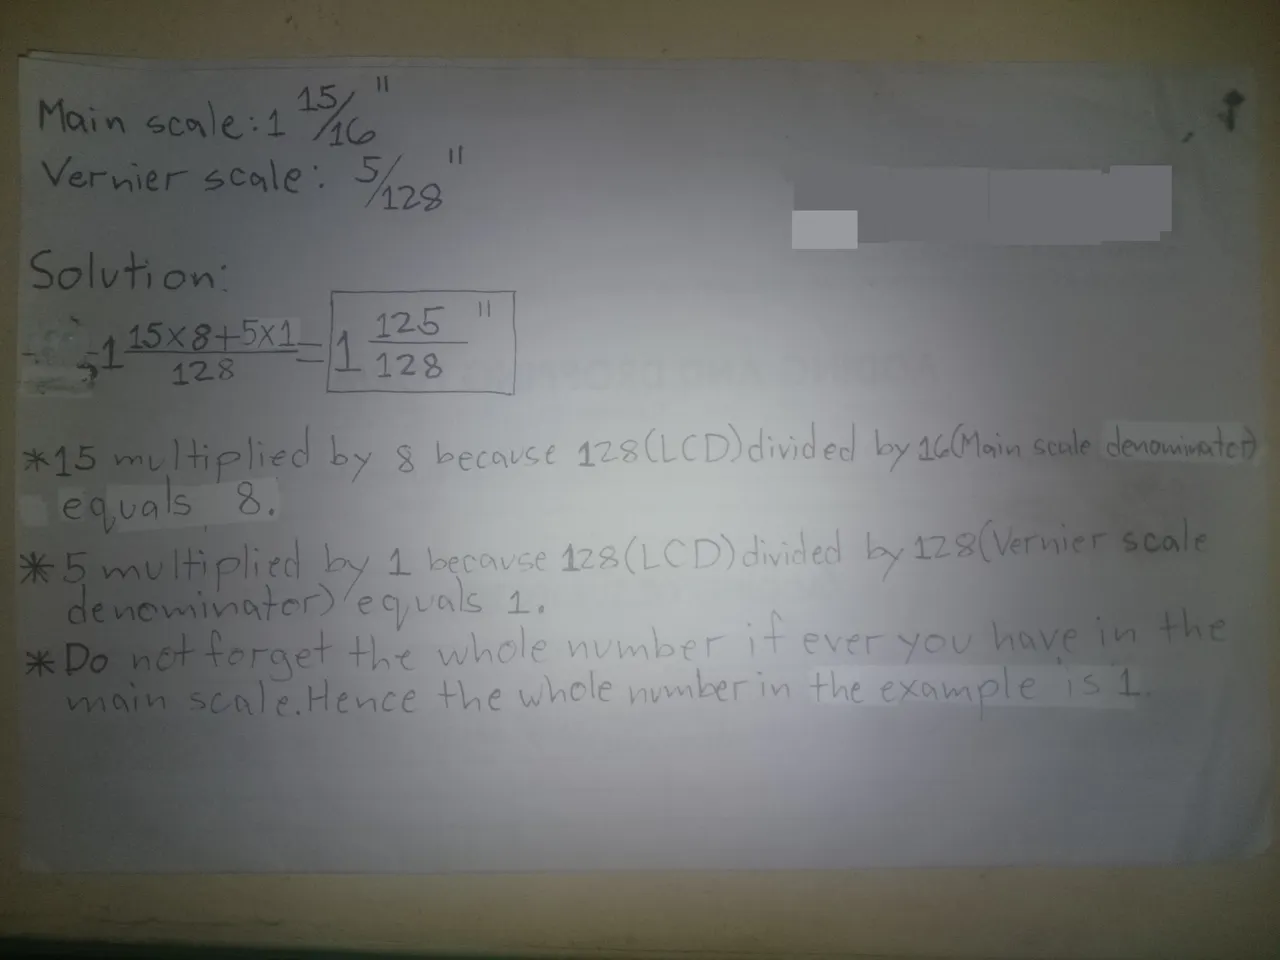 Main scale: 1 15/16"
Vernier scale: 5/128"
Solution:
1 15×8+5×1/128 = 1 125/128"
*15 multiplied by 8 because 128(LCD) divided by 16(Main scale denominator)
equals 8.
*5 multiplied by 1 because 128(LCD) divided by 128(Vernier scale
denominator) equals 1.
*Do not forget the whole number if ever you have in the
main scale. Hence the whole number in the example is 1.